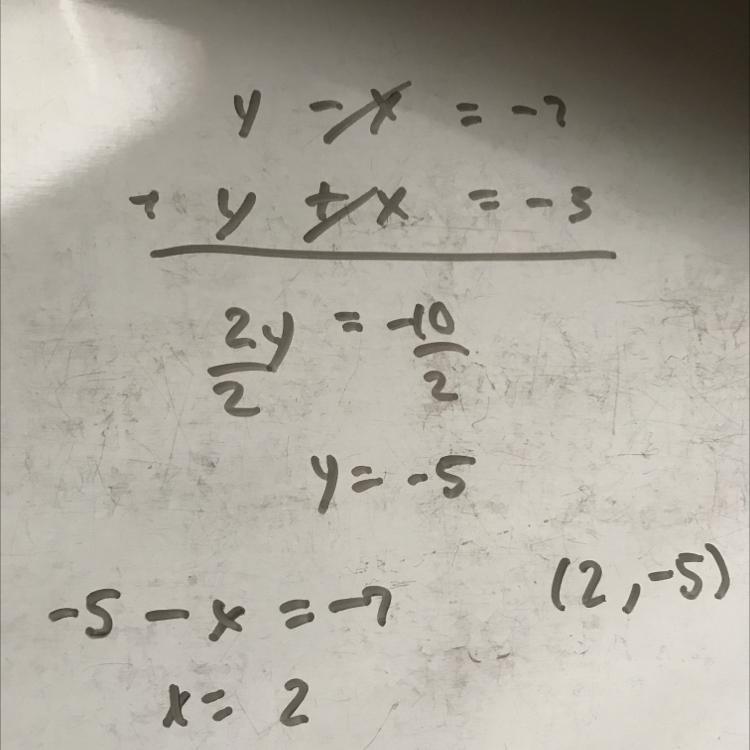 y - x = -7
+ y + x = -3
2y/2 = -10/2
y = -5
-5 - x = -7
(2, -5)
x = 2